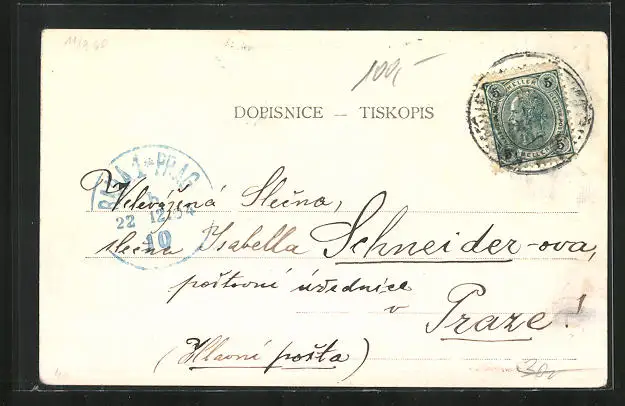 100,-
DOPISNICE — TISKOPIS
5 HELLER 5
5 HELLER 5
PRAHA 1 * PRAG
22 12 04
10
Velevážená Slečna,
slečna Isabella Schneider-ova,
poštovní úřednice
v Praze!
(Hlavní pošta)
30,-